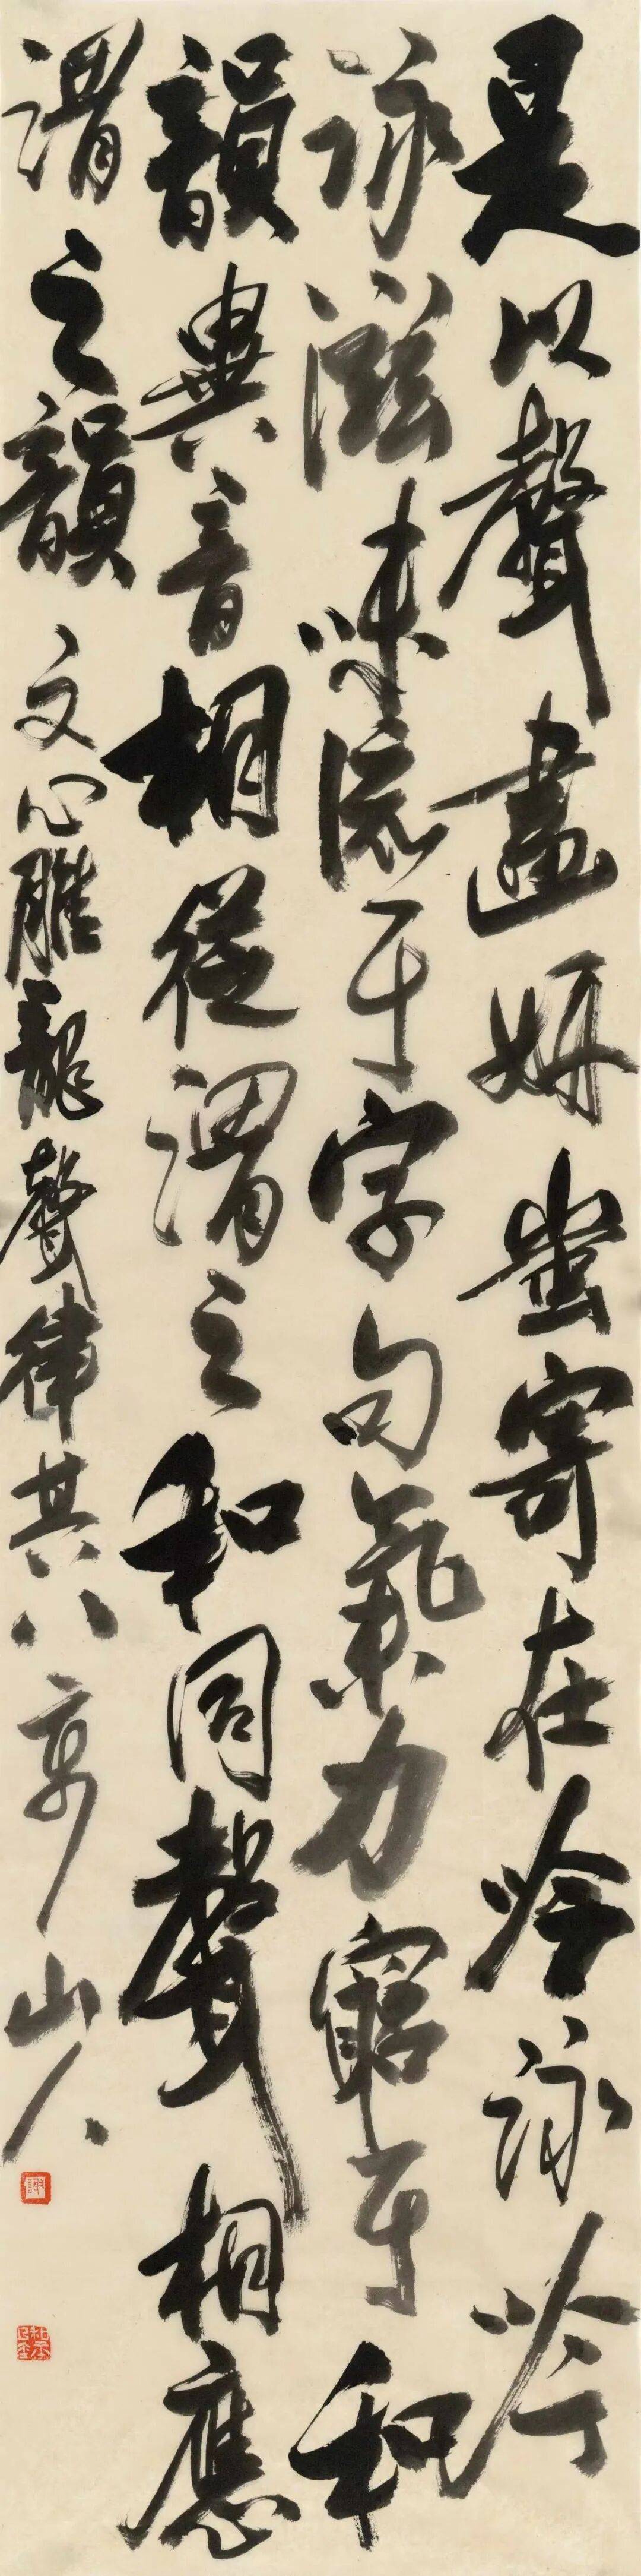 是以聲畫妍蚩寄在吟詠吟
詠滋味流于字句氣力窮于和
韻異音相從謂之和同聲相應
謂之韻 文心雕龍聲律其八 山人